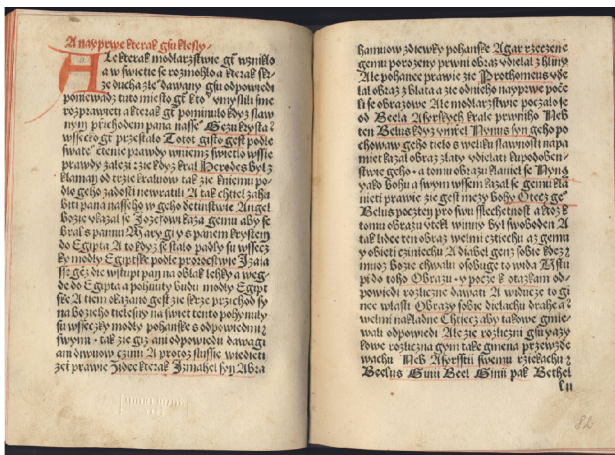 A nayprwe kterak gsu klesly
Ale kterak modlarzstwie gt wzniklo
a w swietie se rozmohlo a kterak skr
ze ducha zle dawany gsu odpowiedi
poniewadz tuto miesto gt kto vmyslili sme
rozprawieti a kterak gt pominulo kdyz slaw
nym przichodem pana nasse Gezu krysta
wsseczko gt przestalo Totot gisto gest podle
swate cztenie prawdy wniemz swietlo wssie
prawdy zalezi zie kdyz kral Herodes byl z
klaman od trzie kraluow tak zie kniemu po
dlo geho zadosti newratili A tak chtiel zahu
biti pana nasseho w geho detinstwie Angel
bozie vkazal se Jozefowi kaza gemu aby se
bral s pannu Mary gi y s panem krystem
do Egipta A to kdyz se stalo padly su wssecz
ky modly Egiptske podle proroctwie Izaia
sse gez die wstupi pan na oblak lehky a weg
de do Egipta a pohnuty budu modly Egipt
ske A tiem okazano gest zie skrze przichod sy
na bozieho tielestny na swiet tento pohynuly
su wsseczky modly pohanske s odpowiedmi
swymi tak zie giz ani odpowiedi dawagi
ani diwuow czinie A protoz slussie wiedieti
zet prawie Zidee kterak Izmahel syn Abra
hamuow z diewky pohanske Agar rzeczene
gemu porozeny prwni obraz vdielal z hliny
Ale pohanee prawie zie Prothomeus vde
lal obraz z blata a zie od nieho nayprwe pocze
li se obrazowe Ale modlarzstwie poczalo se
od Beela Asyrskych krale prwniho Neb
ten Belus kdyz vmrel Nynus syn geho po
chowaw geho tielo s weliku slawnosti napa
miet kazal obraz zlaty vdielati ku podoben
stwie geho a tomu obrazu klaniel se Nynus
yako bohu a swym wssem kazal se gemu kla
nieti prawie zie gest mezy bohy Otecz ge
Belus pocten pro swu sslechetnost a ktoz k
tomu obrazu vtekl winny byl swoboden A
tak lidee ten obraz welmi cztiechu az gemu
y obieti cziniechu A diabel genz sobie kdez
muoz bozie chwalu osobuge to wida Wstu
pi do toho Obrazu y pocze k otazkam od
powiedi rozliczne dawati A widucze to gi
nee wlasti Obrazy sobie dielachu draha a
welmi nakladne Chtiecz aby takowe gmie
wali odpowiedi Ale zie rozliczni gsu yazy
kowe rozliczna gym take gmena przewzde
wachu Neb Asyrssti swemu rziekachu
Beelus Ginii Beel Ginii pak Bethel
ku
82